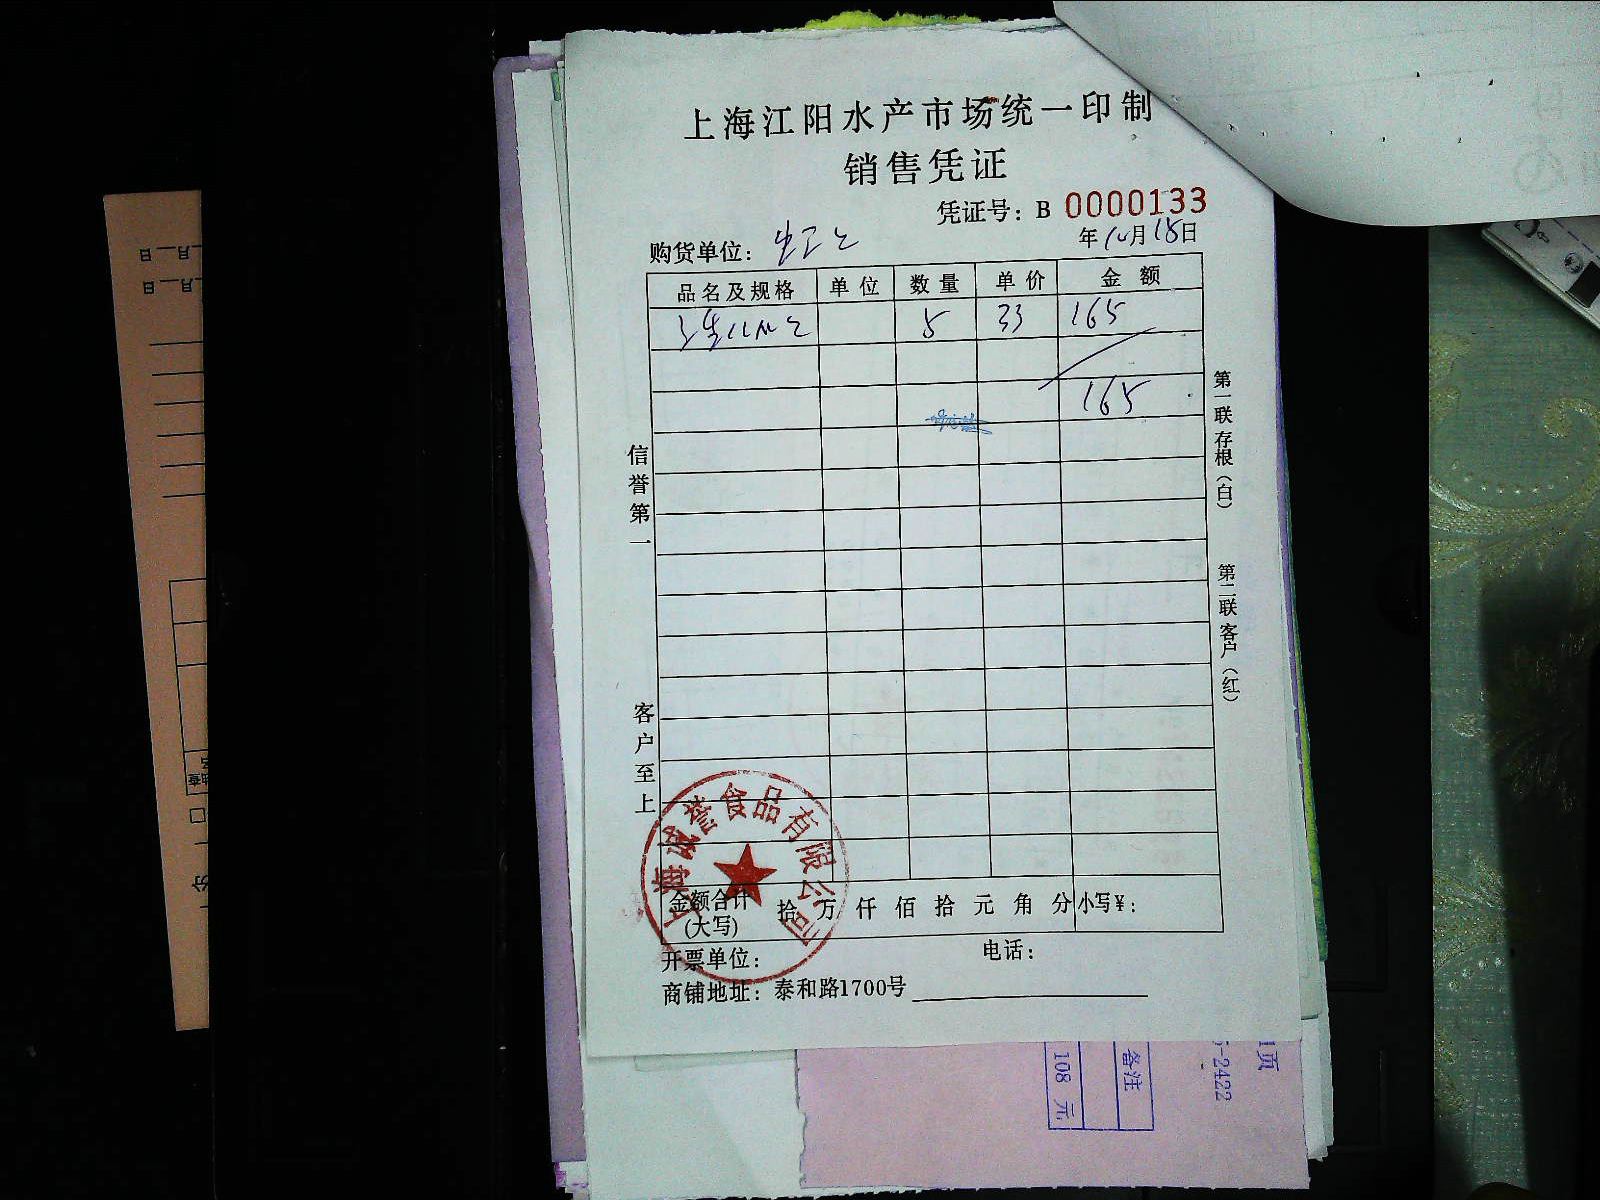 上海江阳水产市场统一印制
销售凭证
凭证号：B 0000133
购货单位：
年10月18日
品名及规格 单位 数量 单价 金额
5 33 165
165
信誉第一
客户至上
第一联存根（白）
第二联客户（红）
上海诚誉食品有限公司
金额合计（大写） 拾 万 仟 佰 拾 元 角 分 小写￥：
开票单位： 电话：
商铺地址：泰和路1700号
备注
108 元
-2422
页